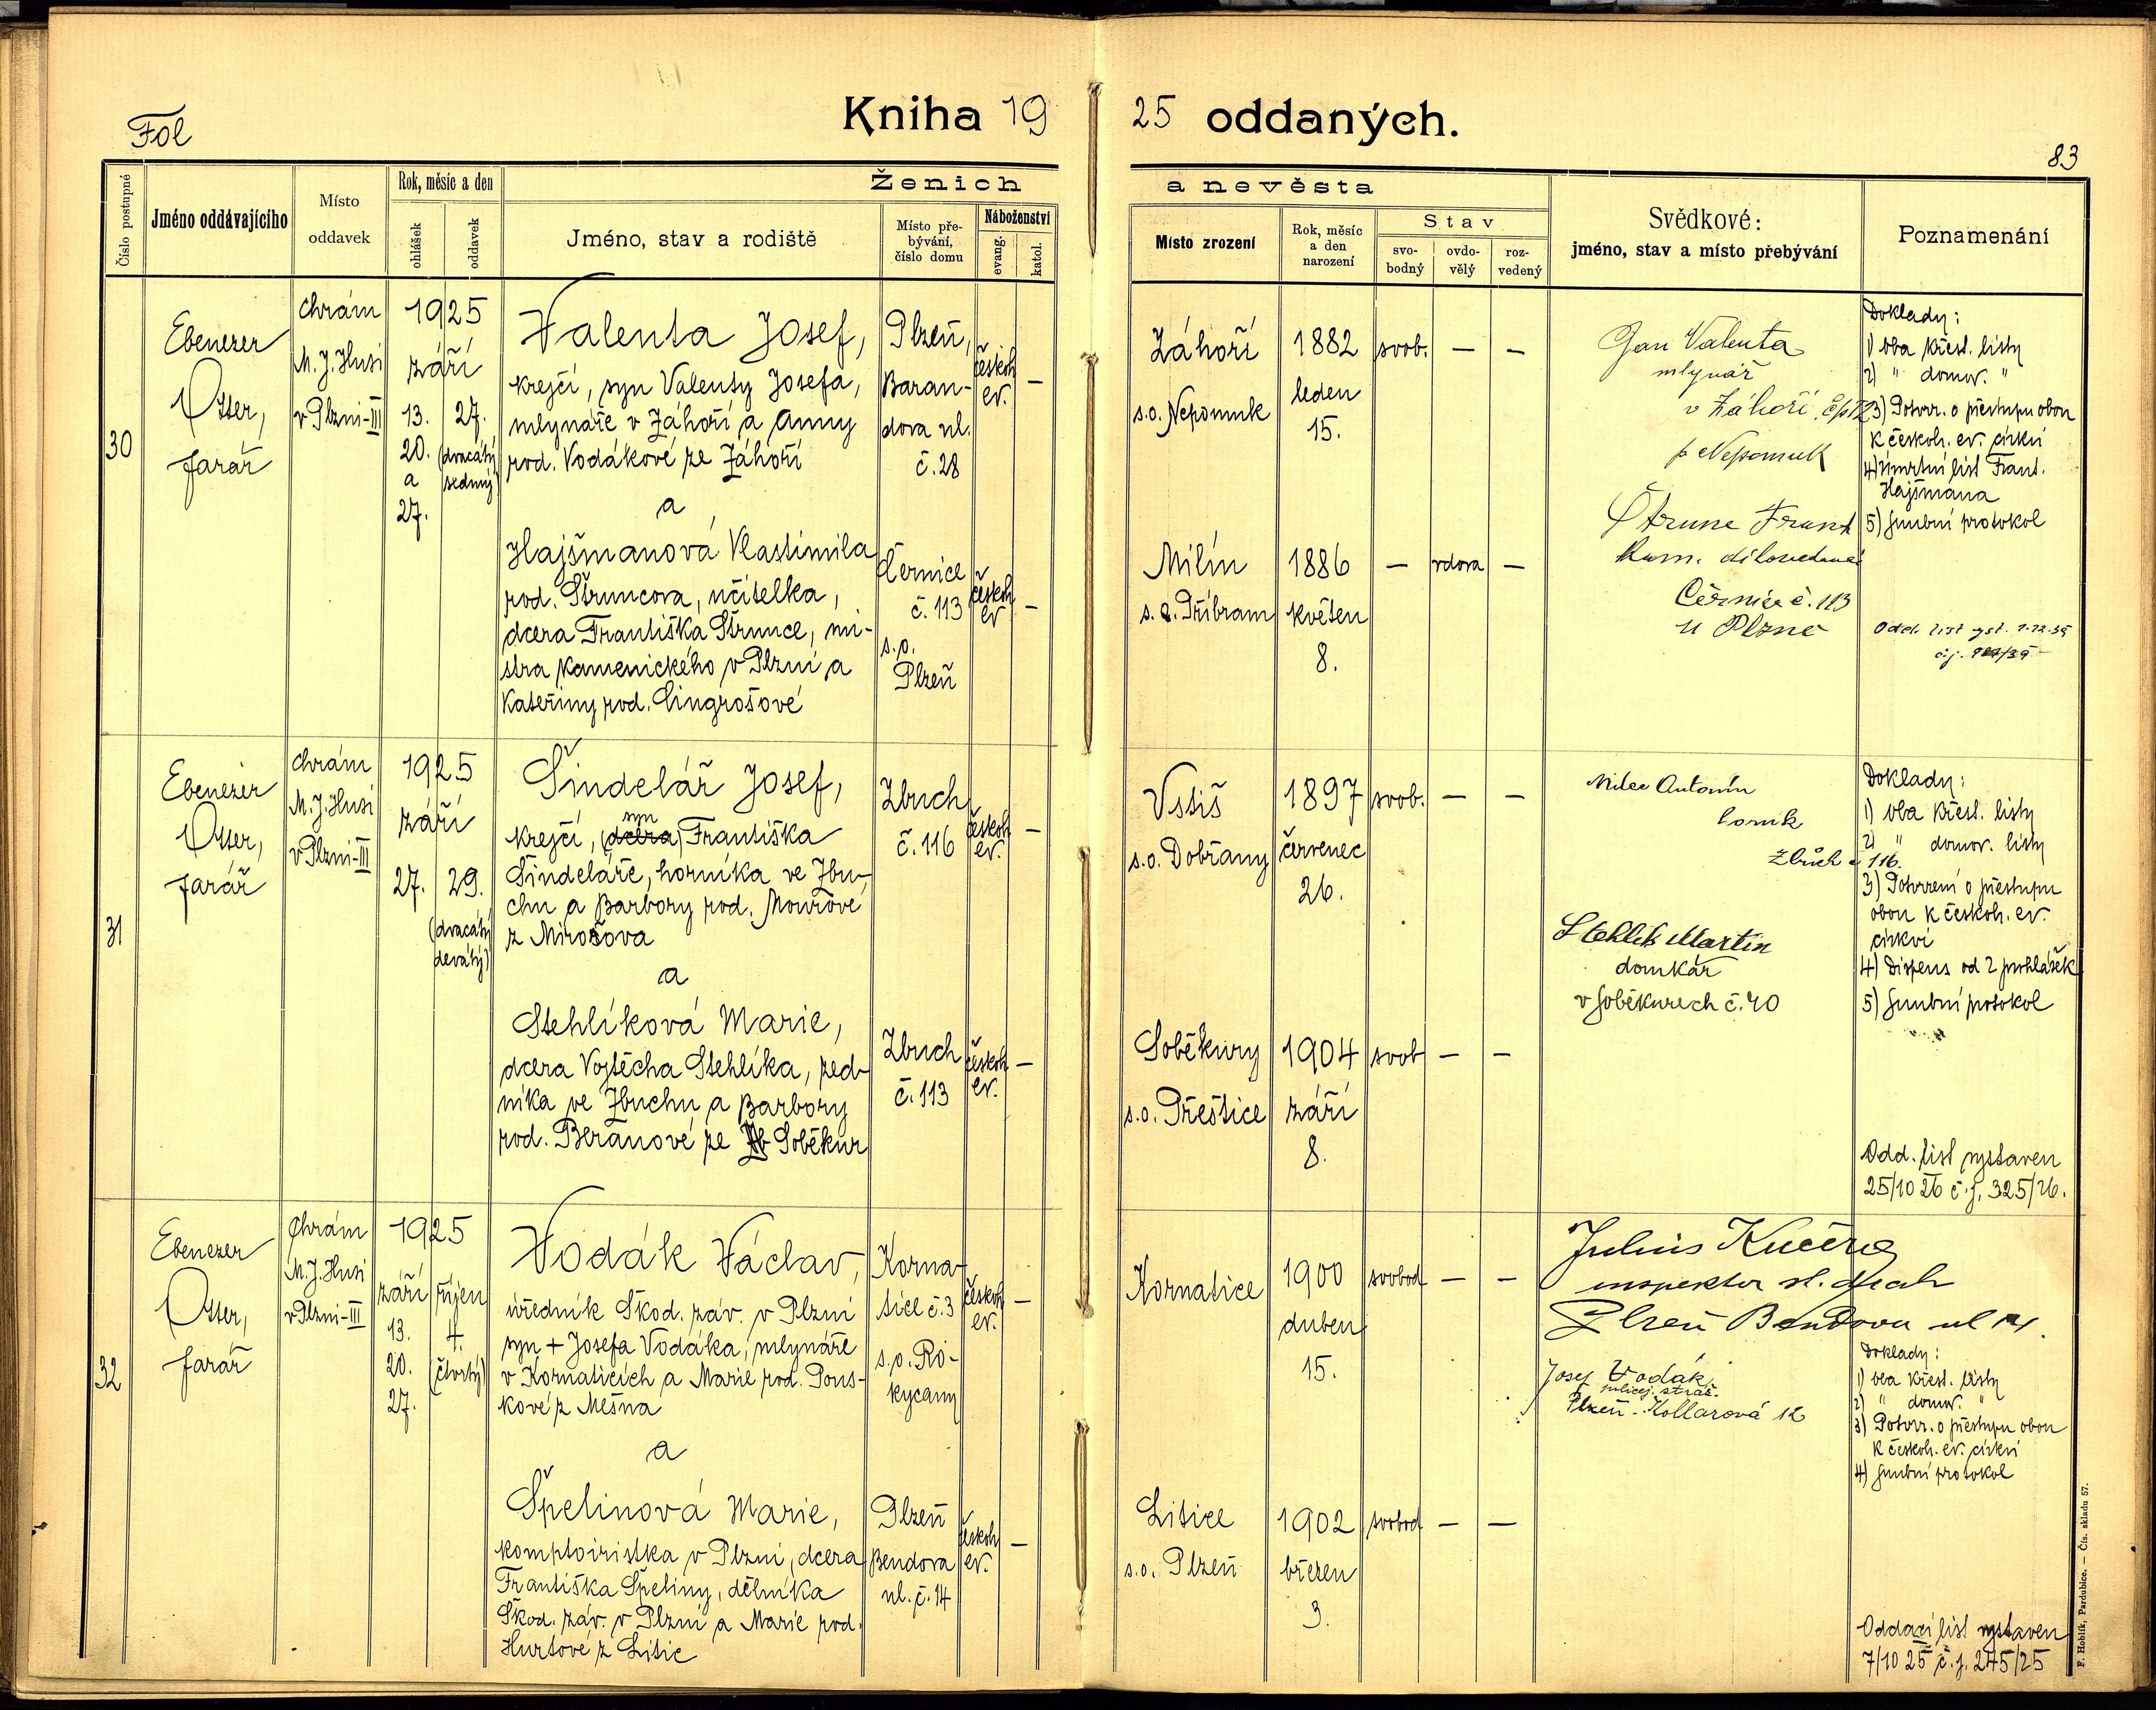 Fol
Kniha 19 25 oddaných.
83
Číslo postupné
Jméno oddávajícího
Místo
oddavek
Rok, měsíc a den
ohlášek
oddavek
Ženich a nevěsta
Jméno, stav a rodiště
Místo pře-
bývání,
číslo domu
Náboženství
evang.
katol.
Místo zrození
Rok, měsíc
a den
narození
Stav
svo-
bodný
ovdo-
vělý
roz-
vedený
Svědkové:
jméno, stav a místo přebývání
Poznamenání
30
Ebenezer
Otter,
farář
chrám
M. J. Husi
v Plzni-III
1925
září
13. 27.
20. (dvacátý
a sedmý)
27.
Valenta Josef,
krejčí, syn Valenty Josefa,
mlynáře v Záhoří a Anny
rod. Vodákové ze Záhoří
a
Hajšmanová Vlastimila
rod. Štruncova, učitelka,
dcera Františka Štrunce, mi-
stra kamenického v Plzni a
Kateřiny rod. Cingrošové
Plzeň,
Baran-
dova ul.
č. 28
českob
ev.
—
Černice
č. 113
s.o.
Plzeň
českob
ev
—
Záhoří
s.o. Nepomuk
1882
leden
15.
svob. — —
Milín
s.o. Příbram
1886
květen
8.
— vdova —
Jan Valenta
mlynář
v Záhoří čp 12
p Nepomuk
Štrunc Frant
kam.
Černice č. 113
u Plzně
Doklady:
1) oba křest. listy
2) " domov. "
3) Potvrz. o přestupu obou
k českob. ev. církvi
4) úmrtní list Frant.
Hajšmana
5) snubní protokol
Odd. list vyst. 1.12.39
č.j.
31
Ebenezer
Otter,
farář
chrám
M. J. Husi
v Plzni-III
1925
září
27. 29.
(dvacátý
devátý)
Šindelář Josef,
syn
krejčí, (dcera) Františka
Šindeláře, horníka ve Zbu-
chu a Barbory rod. Mourové
z Mirošova
a
Stehlíková Marie,
dcera Vojtěcha Stehlíka, zed-
níka ve Zbuchu a Barbory
rod. Beranové ze Zb Soběkur
Zbuch
č. 116
českob
ev.
—
Zbuch
č. 113
českob
ev.
—
Vstiš
s.o. Dobřany
1897
červenec
26.
svob. — —
Soběkury
s.o. Přeštice
1904
září
8.
svob — —
Milec Antonín
horník
Zbůch č 116.
Stehlík Martin
domkář
v Soběkurech č. 40
Doklady:
1) oba křest. listy
2) " domov. listy
3) Potvrzení o přestupu
obou k českob. ev.
církvi
4) Dispens od 2 prohlášek
5) snubní protokol
Odd. list vystaven
25/10 26 č.j. 325/26.
32
Ebenezer
Otter,
farář
Chrám
M. J. Husi
v Plzni-III
1925
září říjen
13. 4.
20. (čtvrtý)
27.
Vodák Václav,
úředník Škod. záv. v Plzni
syn + Josefa Vodáka, mlynáře
v Kornaticích a Marie rod. Pous-
kové z Mešna
a
Špelinová Marie,
komptoiristka v Plzni, dcera
Františka Špeliny, dělníka
Škod. záv. v Plzni a Marie rod.
Hurtové z Litic
Korna-
tice č. 3
s.o. Ro-
kycany
českob
ev.
—
Plzeň
Bendova
ul. č. 14
českob
ev.
—
Kornatice
1900
duben
15.
svobod — —
Litice
s.o. Plzeň
1902
březen
3.
svobod — —
Julius Kučera
inspektor st. drah
Plzeň Bendova ul 14.
Josef Vodák,
policej. stráž.
Plzeň - Kollarová 12
Doklady:
1) oba křest. listy
2) " domov. "
3) Potvrz. o přestupu obou
k českob. ev. církvi
4) snubní protokol
Oddací list vystaven
7/10 25 č.j. 245/25
F. Hoblík, Pardubice. — Čís. skladu 57.